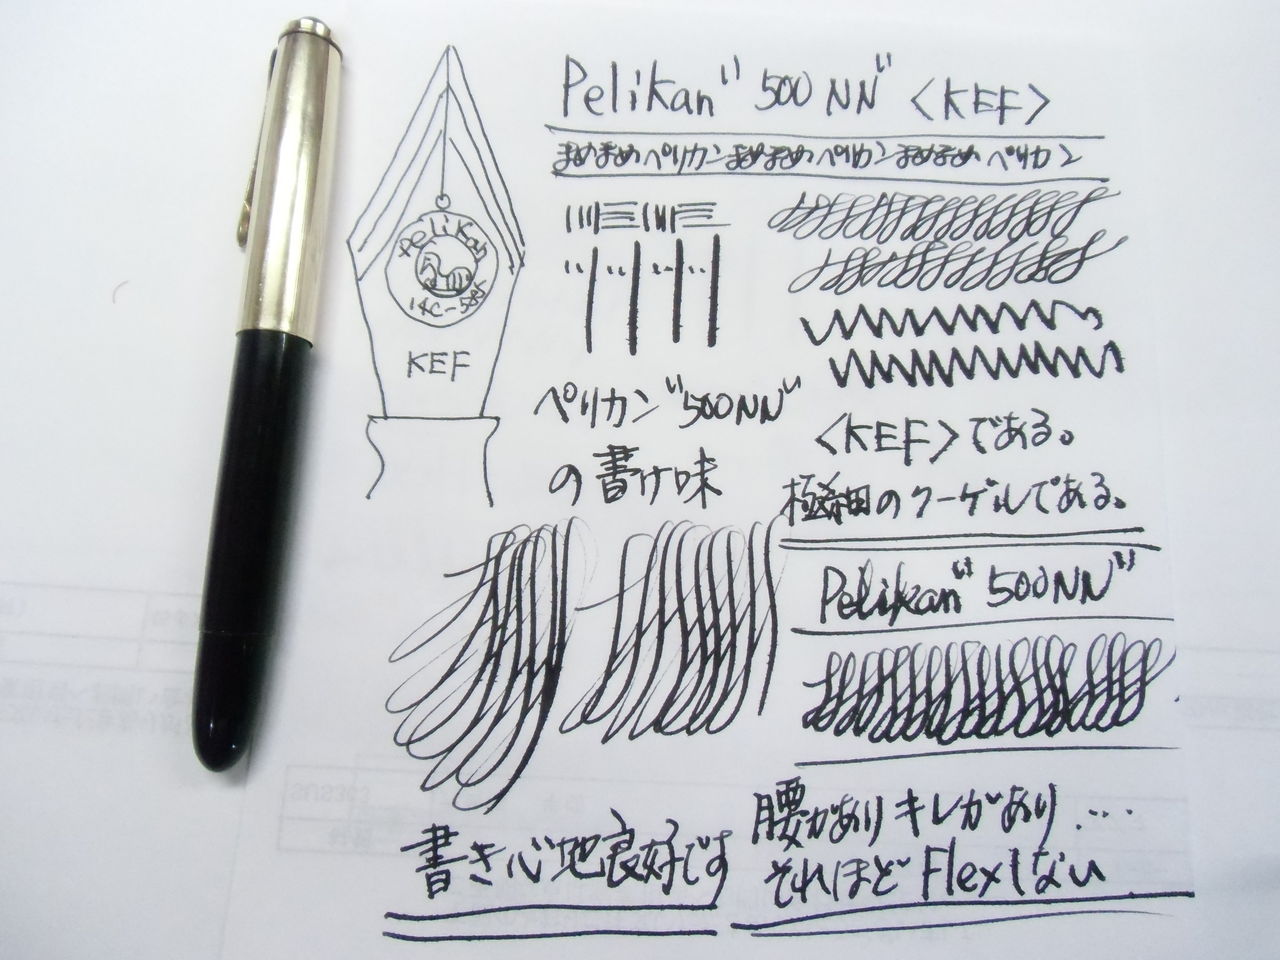 Pelikan "500NN" <KEF>
まめまめペリカンまめまめペリカンまめまめペリカン
Pelikan
14C-585
KEF
ペリカン"500NN"
の書け味
<KEF>である。
極細のクーゲルである。
Pelikan "500NN"
書き心地良好です
腰がありキレがあり…
それほどFlexしない